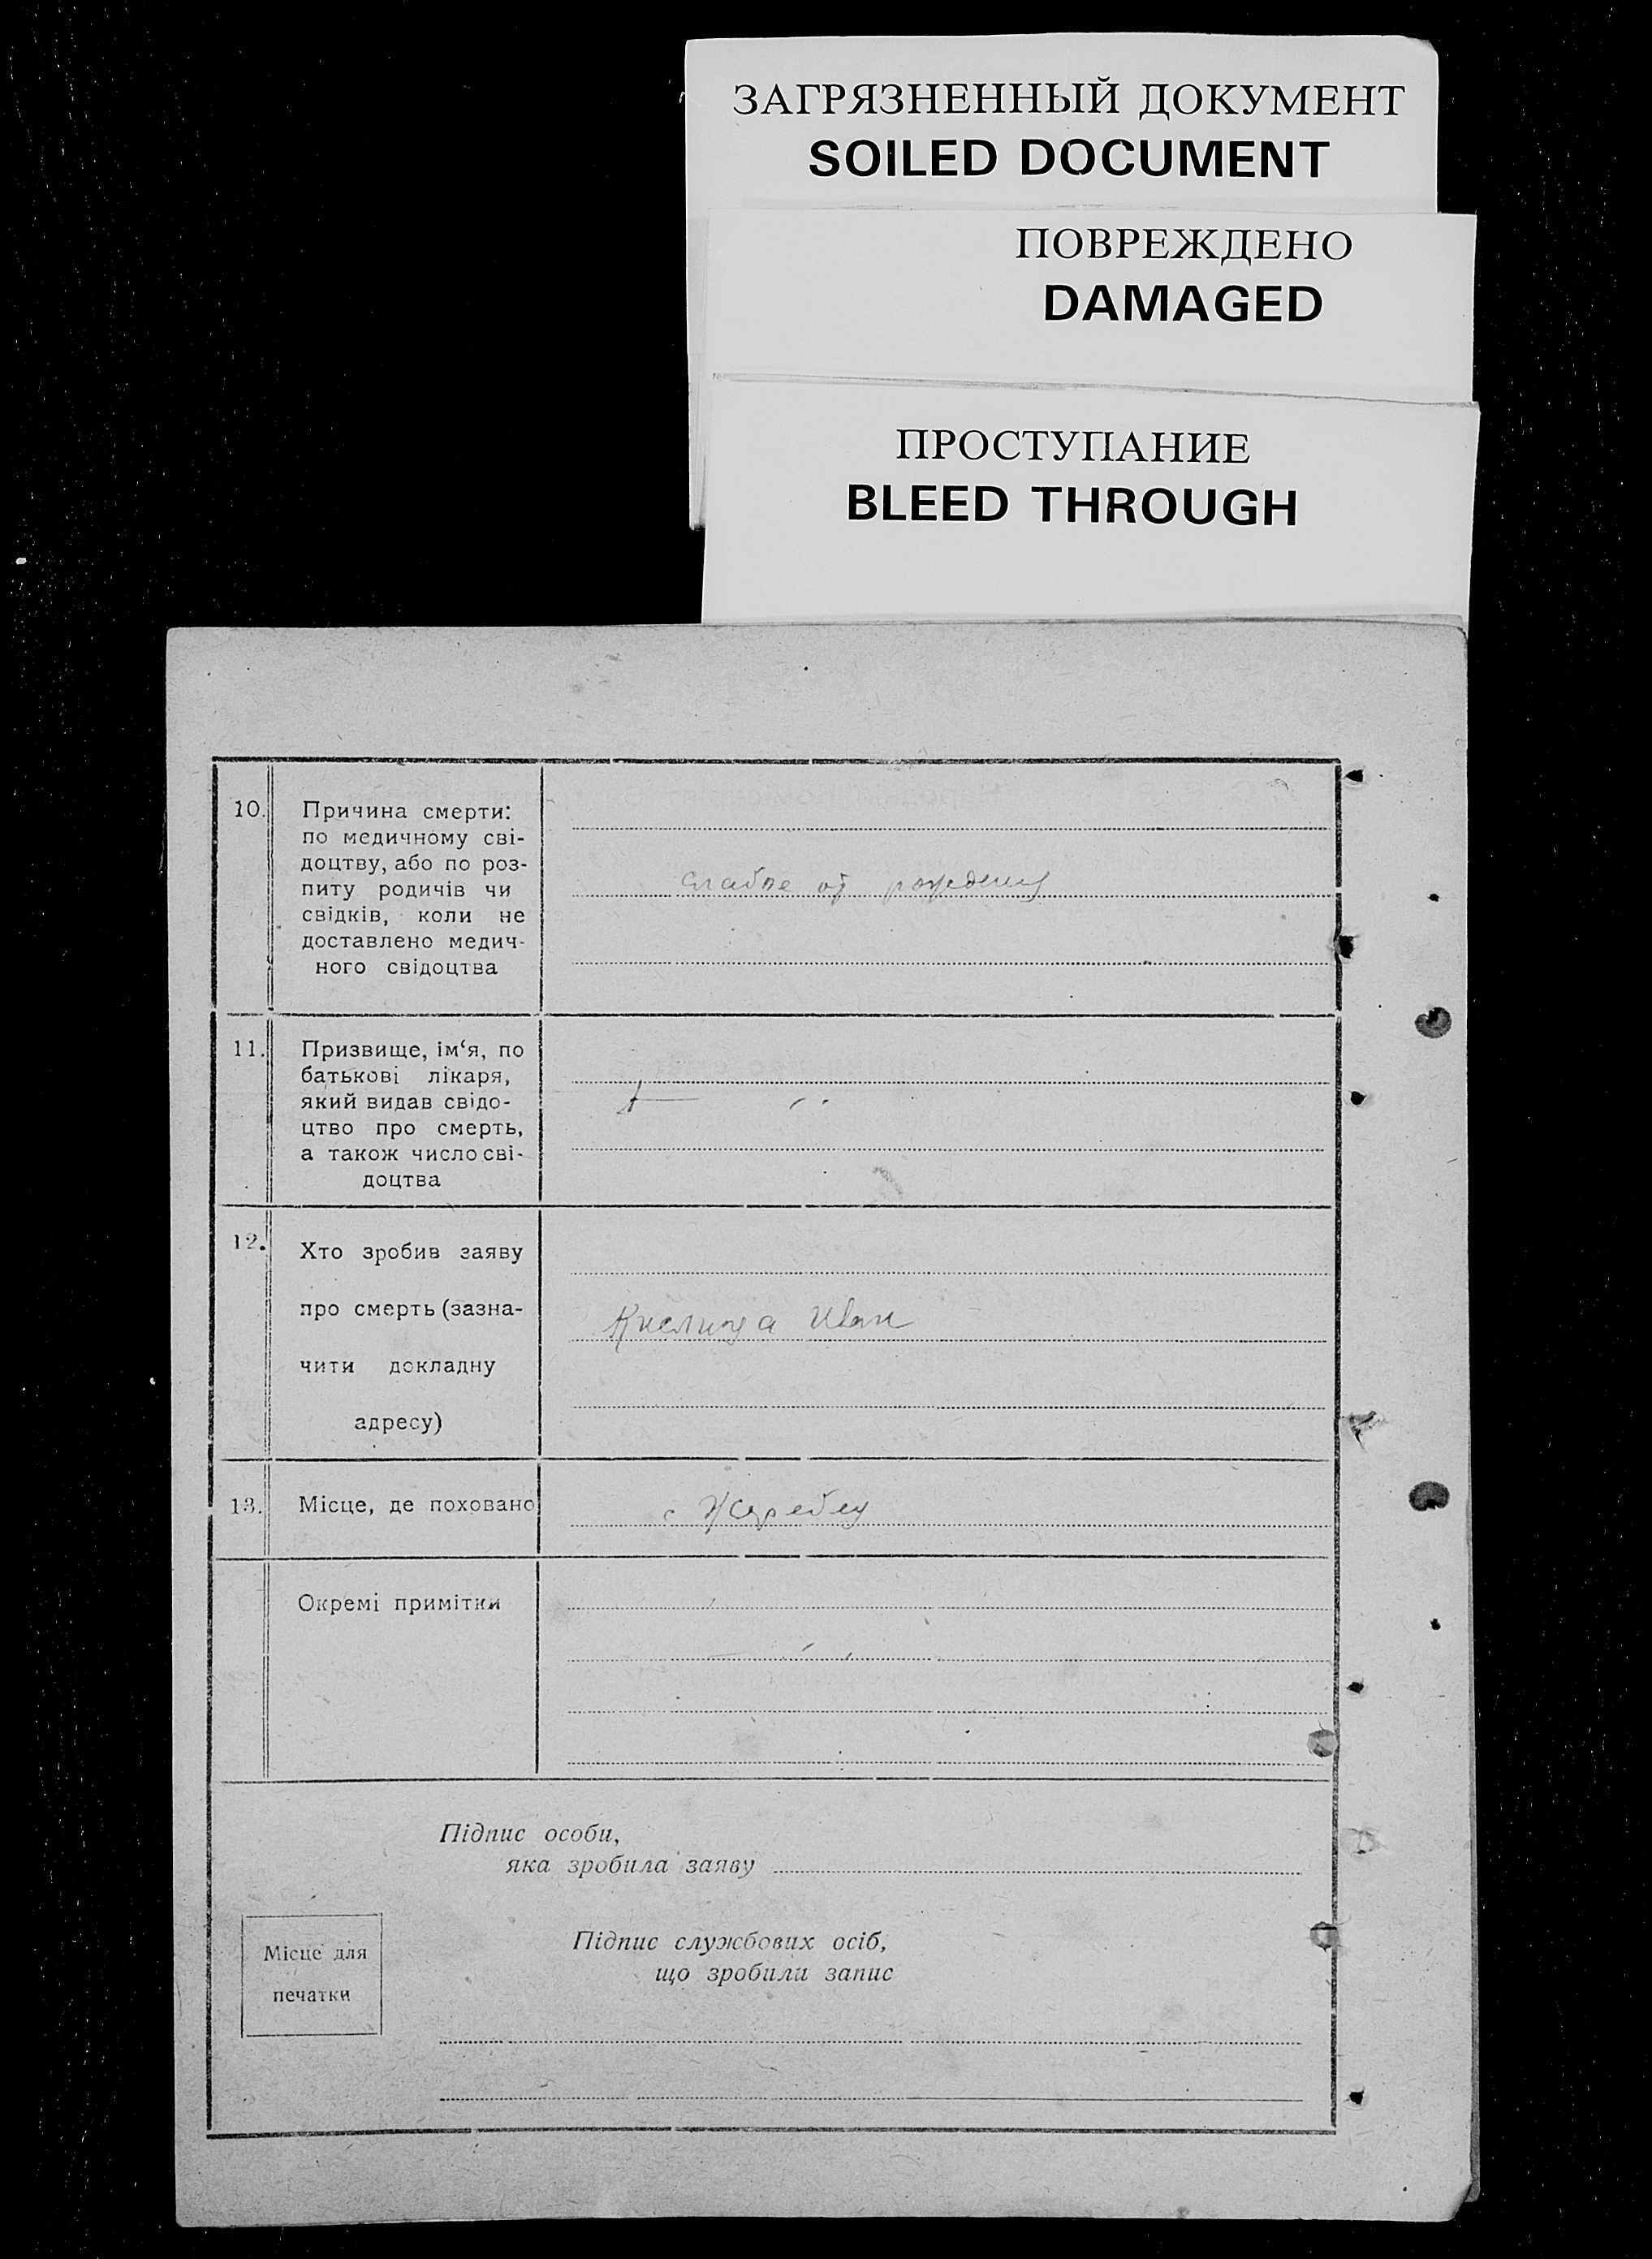 ЗАГРЯЗНЕННЫЙ ДОКУМЕНТ
SOILED DOCUMENT
ПОВРЕЖДЕНО
DAMAGED
ПРОСТУПАНИЕ
BLEED THROUGH
10. Причина смерти:
по медичному сві-
доцтву, або по роз-
питу родичів чи
свідків, коли не
доставлено медич-
ного свідоцтва
слабое от рождения
11. Призвище, ім‘я, по
батькові лікаря,
який видав свідо-
цтво про смерть,
а також число сві-
доцтва
12. Хто зробив заяву
про смерть (зазна-
чити докладну
адресу)
Кислица Иван
13. Місце, де поховано
с Жеребец
Окремі примітки
Підпис особи,
яка зробила заяву
Місце для
печатки
Підпис службових осіб,
що зробили запис